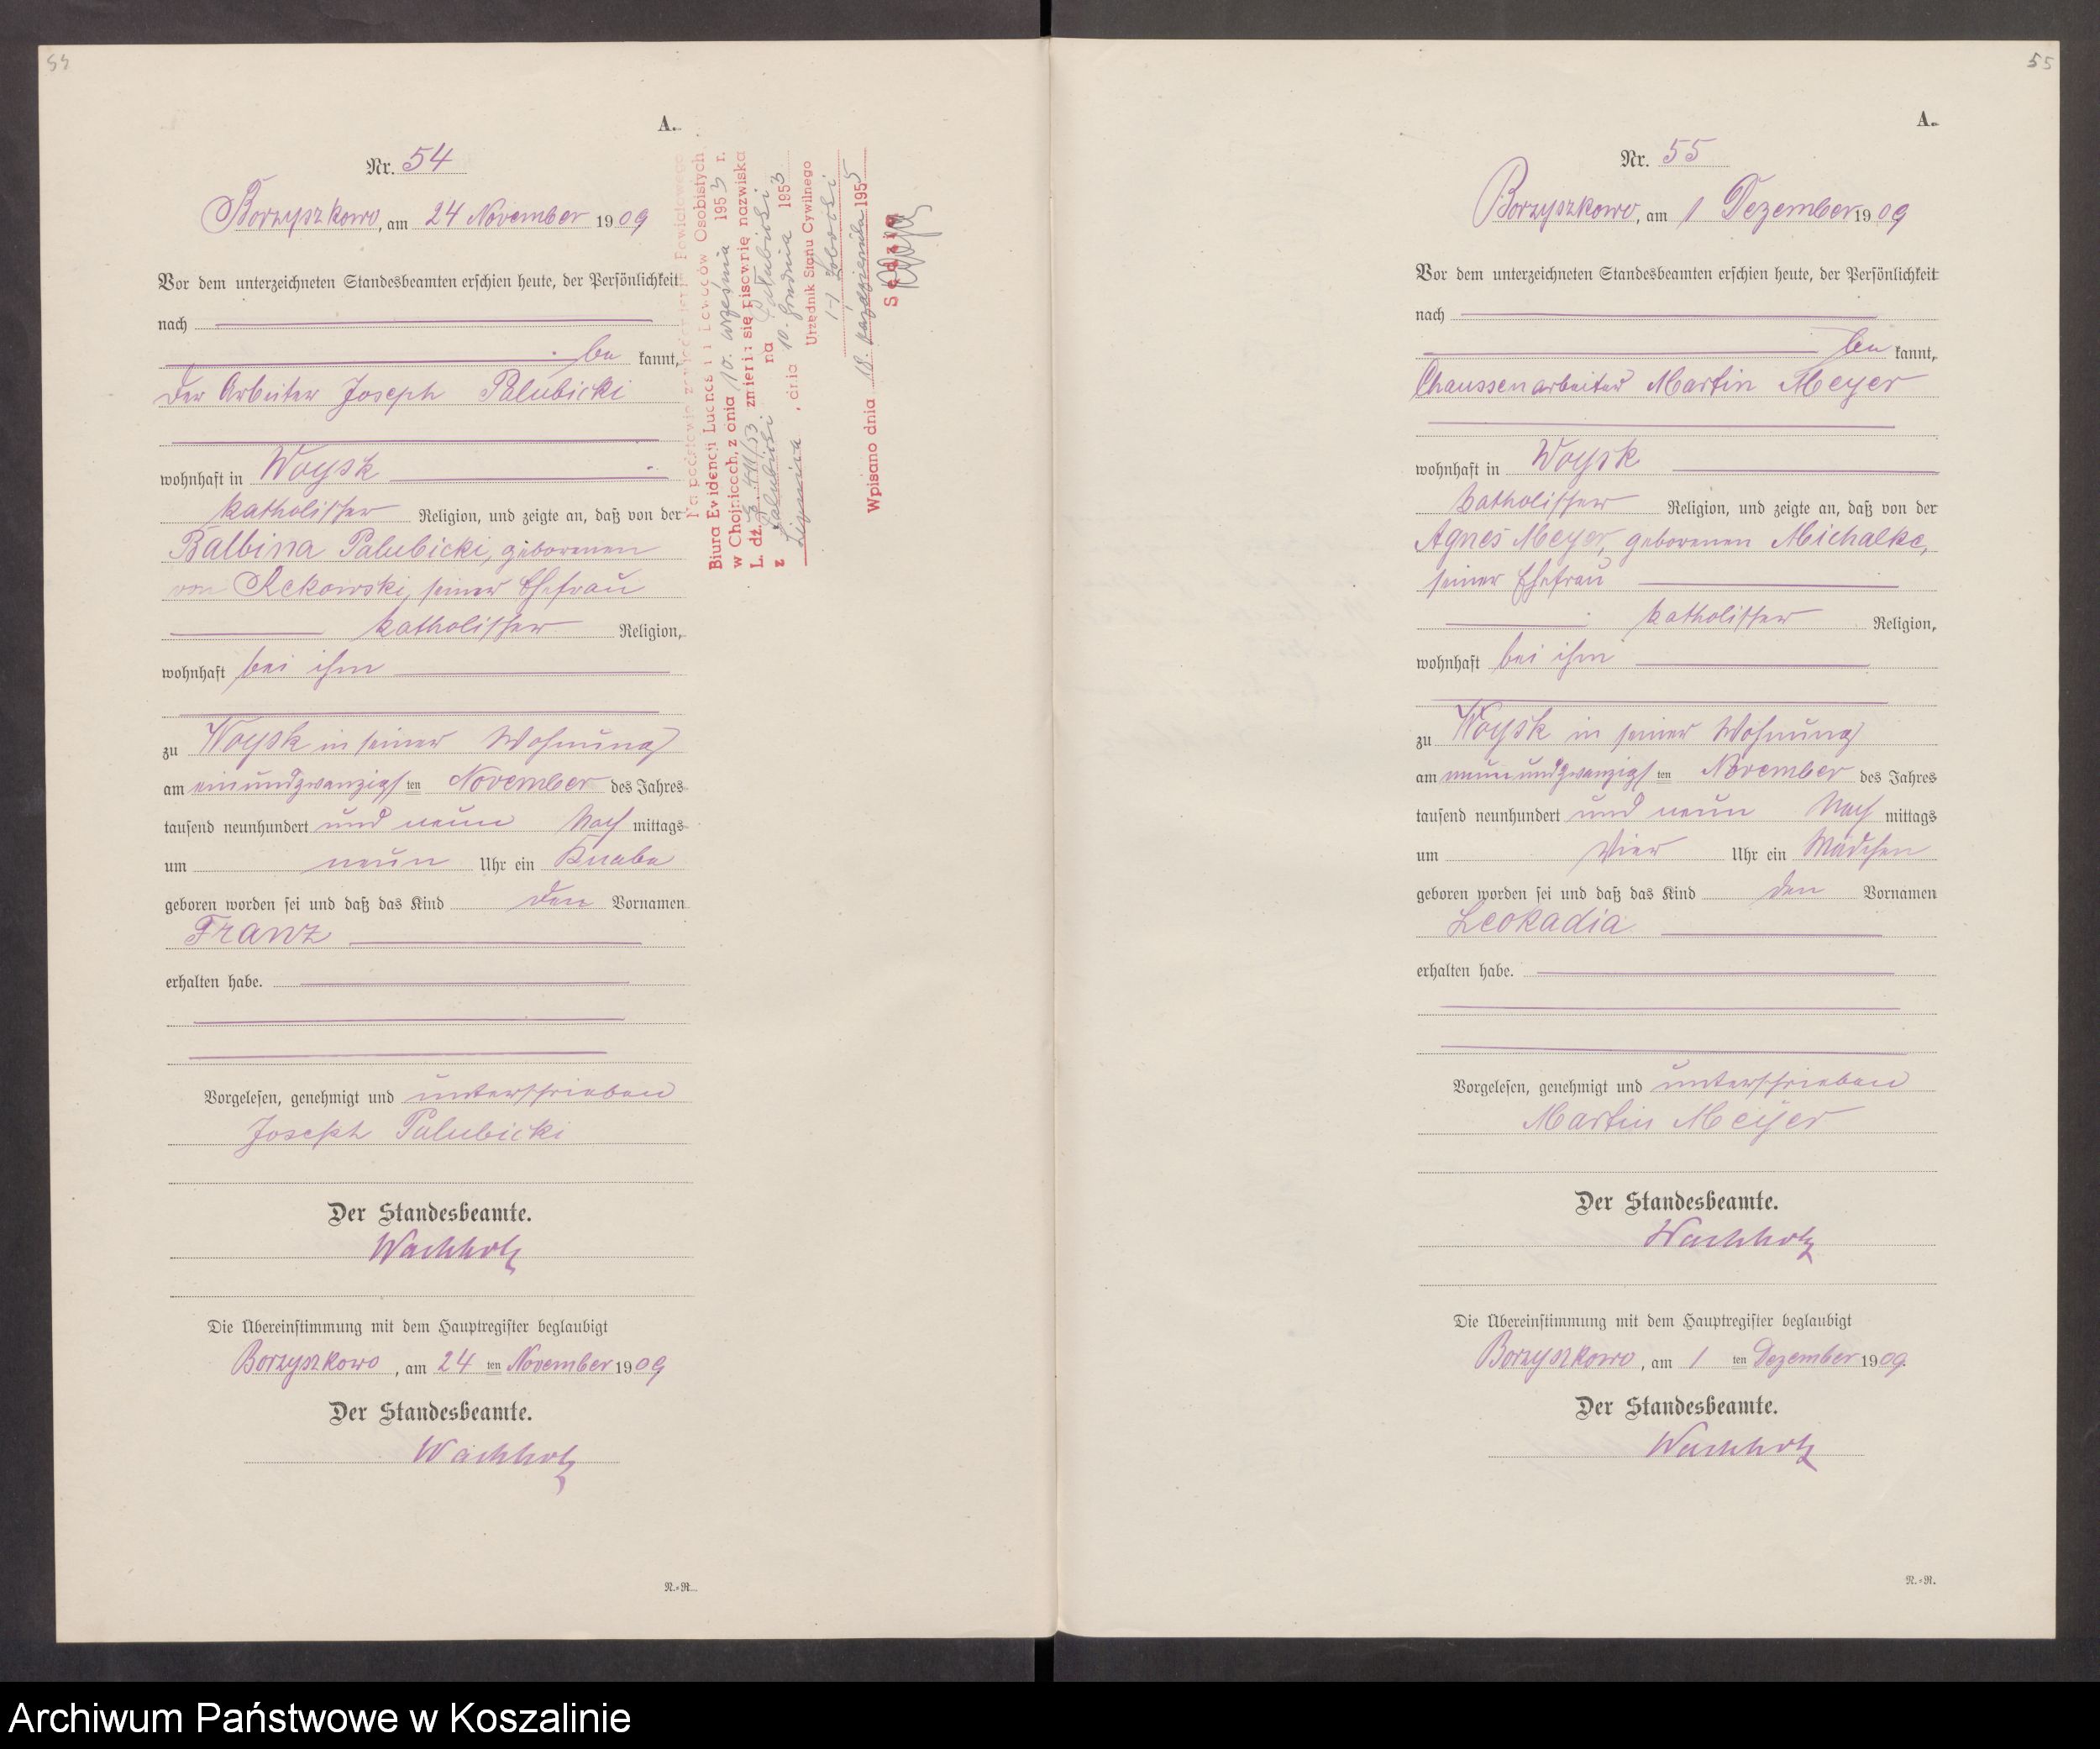 54
A.
Nr. 54
Borzyszkowo, am 24 November 1909
Vor dem unterzeichneten Standesbeamten erschien heute, der Persönlichkeit
nach
be kannt,
der Arbeiter Joseph Palubicki
wohnhaft in Woysk
katholischer Religion, und zeigte an, daß von der
Balbina Palubicki, geborenen
von Rekowski, seiner Ehefrau
katholischer Religion,
wohnhaft bei ihm
zu Woysk in seiner Wohnung
am einundzwanzigsten November des Jahres
tausend neunhundert und neun Nach mittags
um neun Uhr ein Knabe
geboren worden sei und daß das Kind den Vornamen
Franz
erhalten habe.
Vorgelesen, genehmigt und unterschrieben
Joseph Palubicki
Der Standesbeamte.
Wachholz
Die Übereinstimmung mit dem Hauptregister beglaubigt
Borzyszkowo, am 24 ten November 1909
Der Standesbeamte.
Wachholz
N.-R.
Na podstawie Powiatowego
Biura Ewidencji Ludności i Dowodów Osobistych
w Chojnicach, z dnia 10. września 1953 r.
L. dz. 411/53 zmienia się pisownię nazwiska
z Palubicki na Pałubicki
dnia 10. grudnia 1953
Urzędnik Stanu Cywilnego
Wpisano dnia 18. października 1955
55
A.
Nr. 55
Borzyszkowo, am 1 Dezember 1909
Vor dem unterzeichneten Standesbeamten erschien heute, der Persönlichkeit
nach
be kannt,
Chausseearbeiter Martin Meyer
wohnhaft in Woysk
katholischer Religion, und zeigte an, daß von der
Agnes Meyer, geborenen Michalke,
seiner Ehefrau
katholischer Religion,
wohnhaft bei ihm
zu Woysk in seiner Wohnung
am neunundzwanzigsten November des Jahres
tausend neunhundert und neun Nach mittags
um vier Uhr ein Mädchen
geboren worden sei und daß das Kind den Vornamen
Leokadia
erhalten habe.
Vorgelesen, genehmigt und unterschrieben
Martin Meyer
Der Standesbeamte.
Wachholz
Die Übereinstimmung mit dem Hauptregister beglaubigt
Borzyszkowo, am 1 ten Dezember 1909.
Der Standesbeamte.
Wachholz
N.-R.
Archiwum Państwowe w Koszalinie